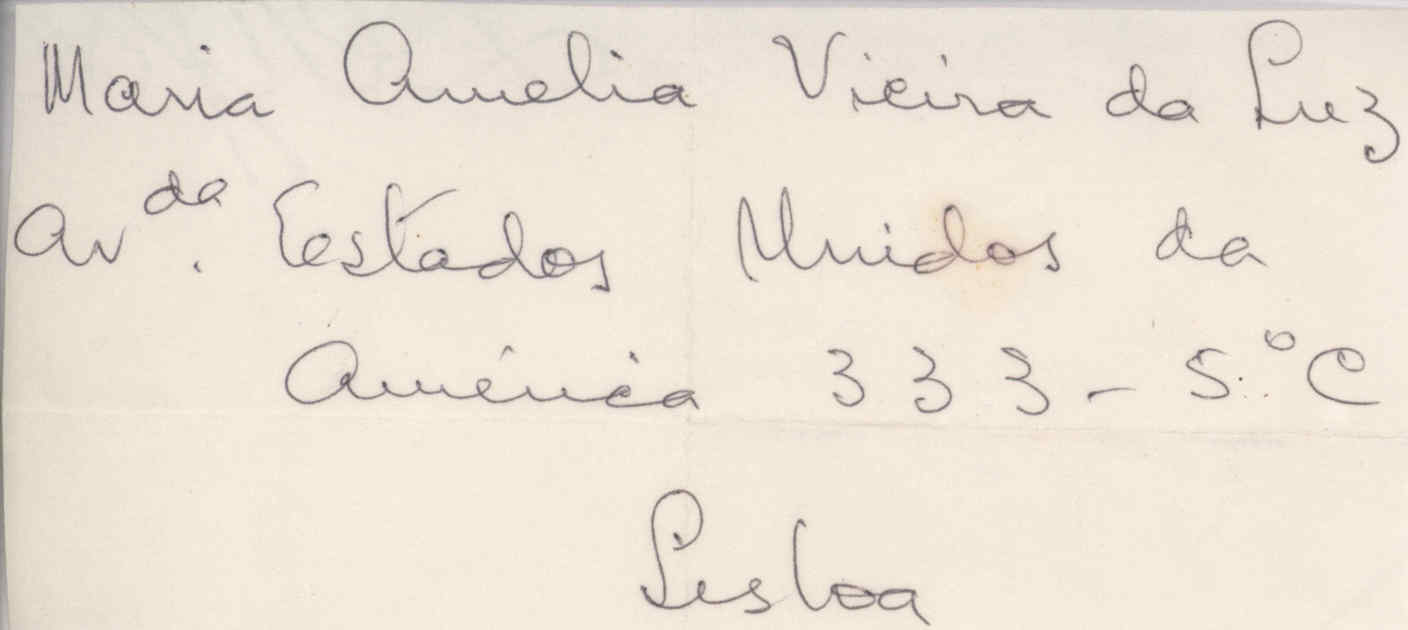 Maria Amelia Vieira da Luz
Av.da Estados Unidos da
América 333 - 5.º C
Lisboa